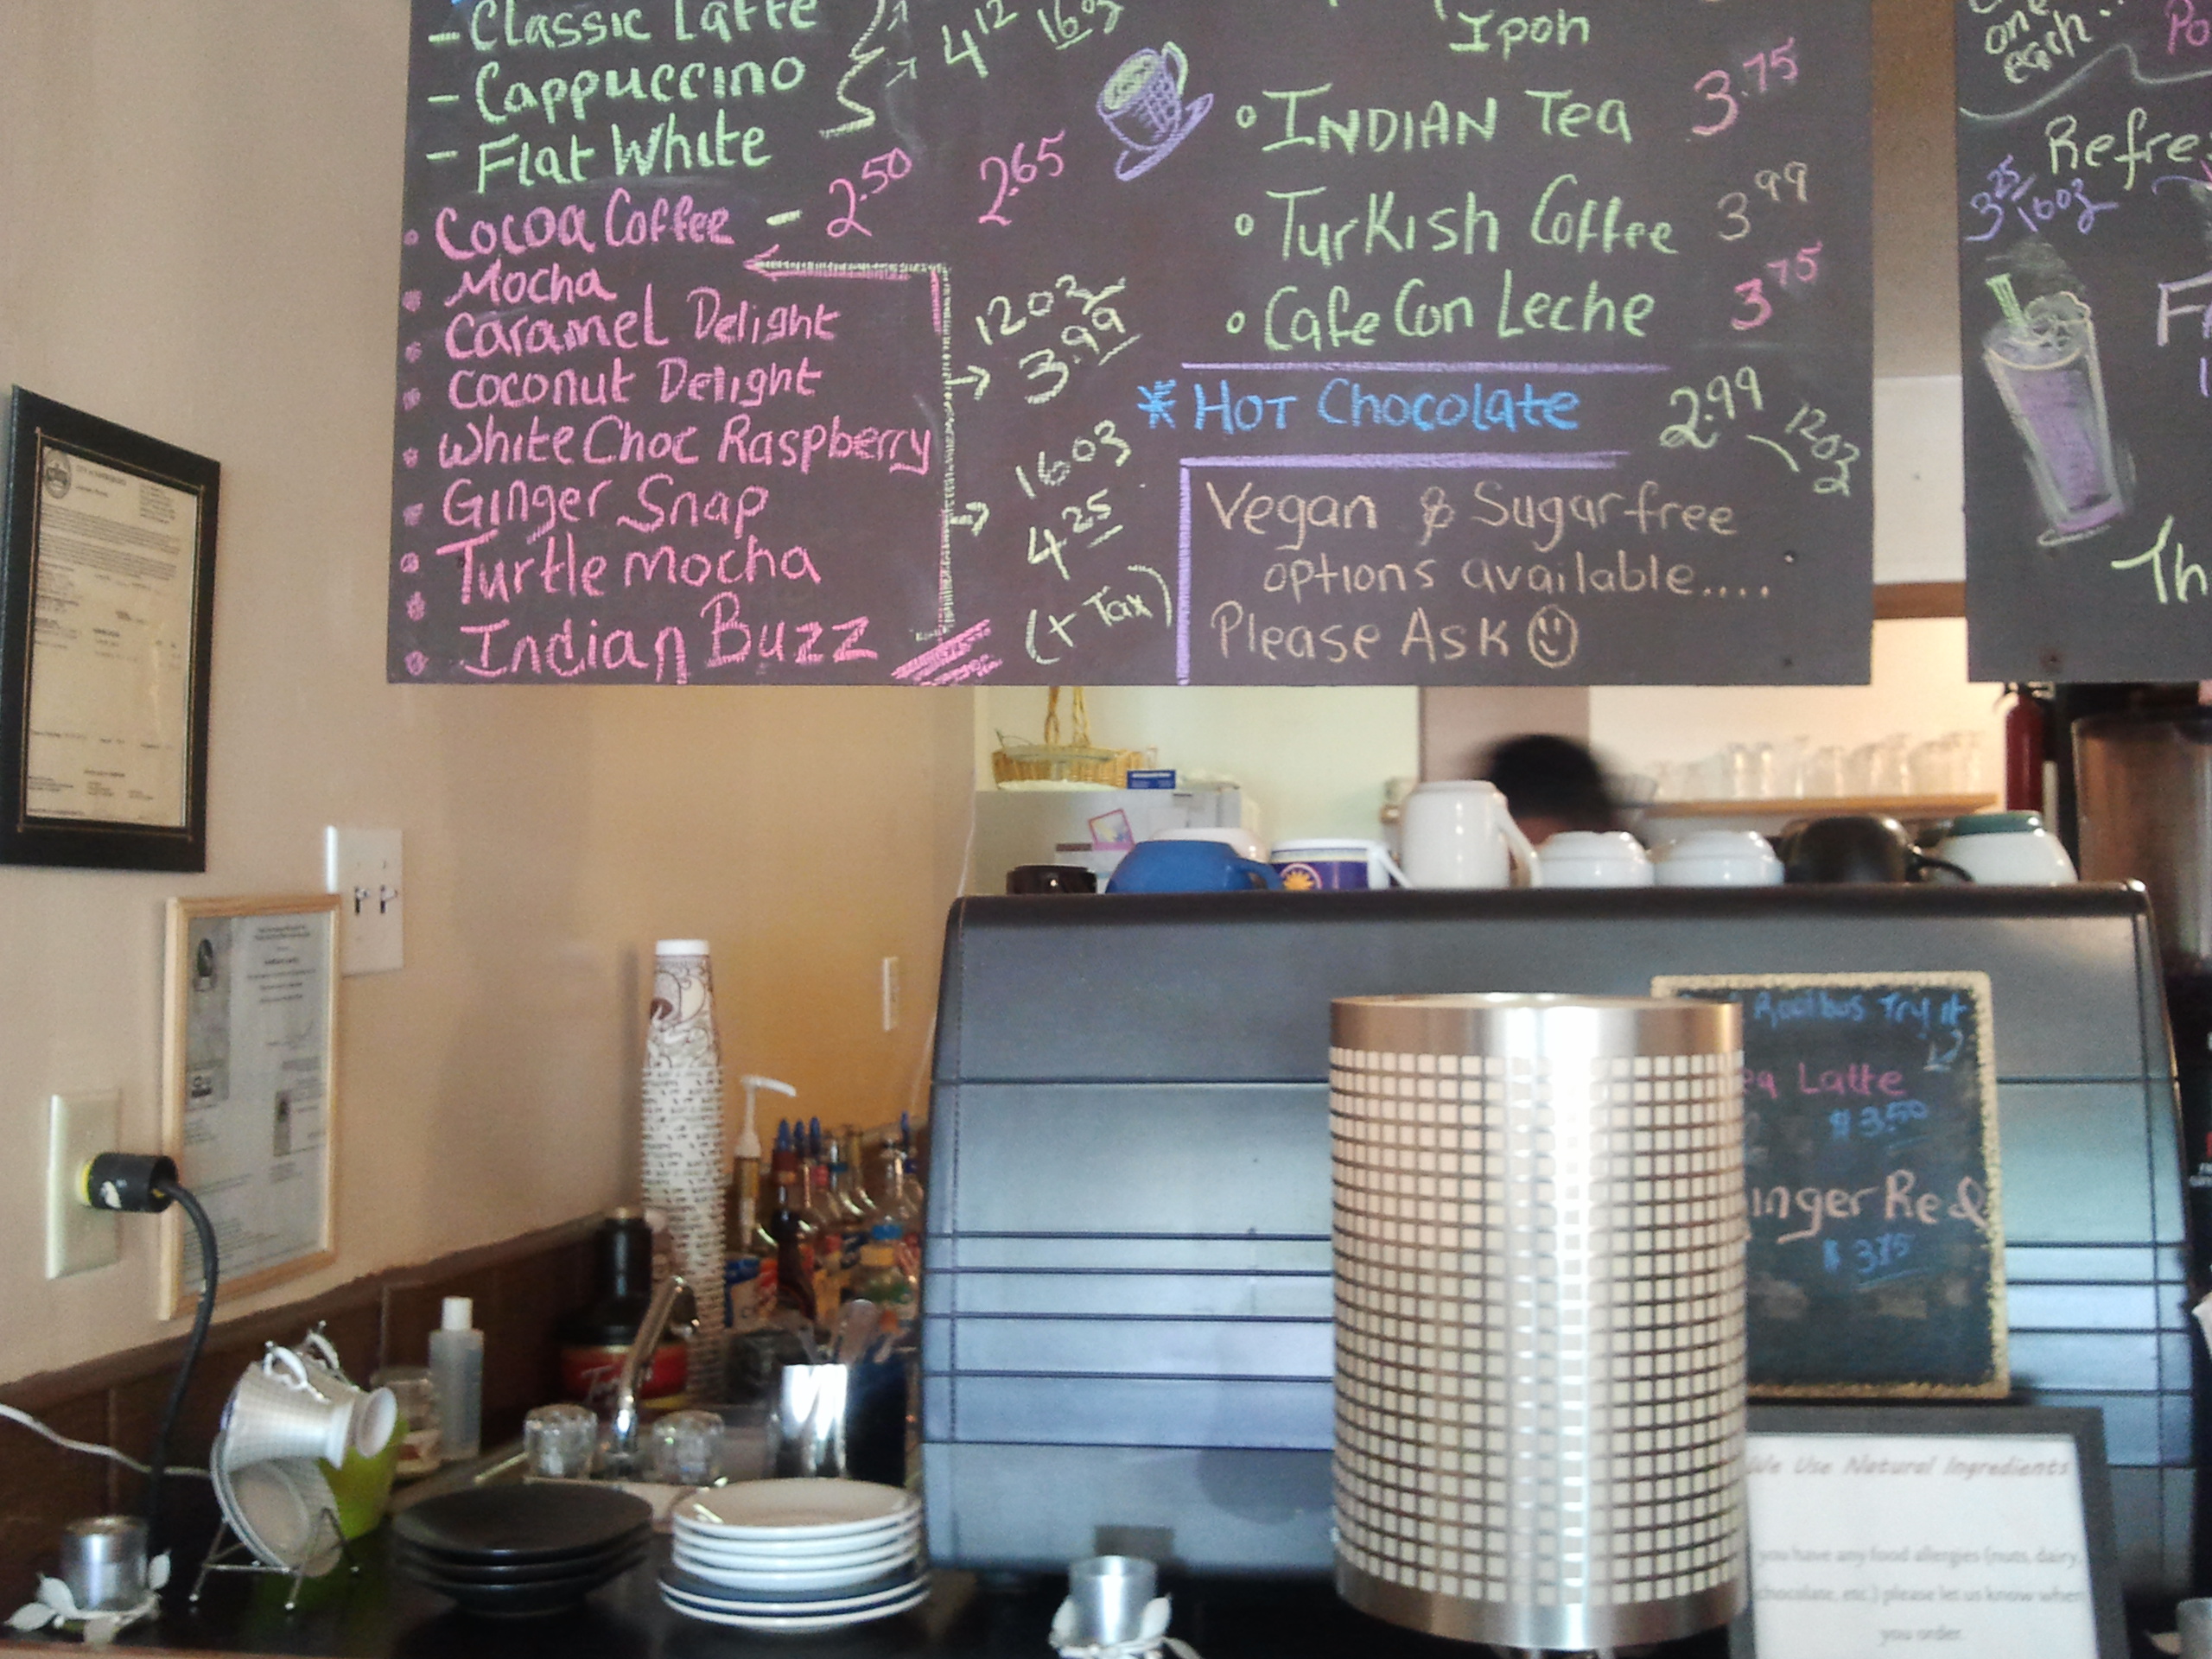 - Classic Latte
- Cappuccino
- Flat White
4.12 16oz
• Cocoa Coffee - 2.50 2.65
Mocha
Caramel Delight
Coconut Delight
White Choc Raspberry
Ginger Snap
Turtle Mocha
Indian Buzz
12oz
3.99
16oz
4.25
(+ Tax)
Ipoh
• INDIAN Tea 3.75
• Turkish Coffee 3.99
• Cafe Con Leche 3.75
* HOT Chocolate 2.99 12oz
Vegan & Sugar free
options available....
Please Ask
one
each..
Po
Refre
3.25/16oz
F
Th
Rooibus Try it
ea Latte
$ 3.50
inger Red
$ 3.75
We Use Natural Ingredients
you have any food allergies (nuts, dairy,
chocolate, etc.) please let us know when
you order.